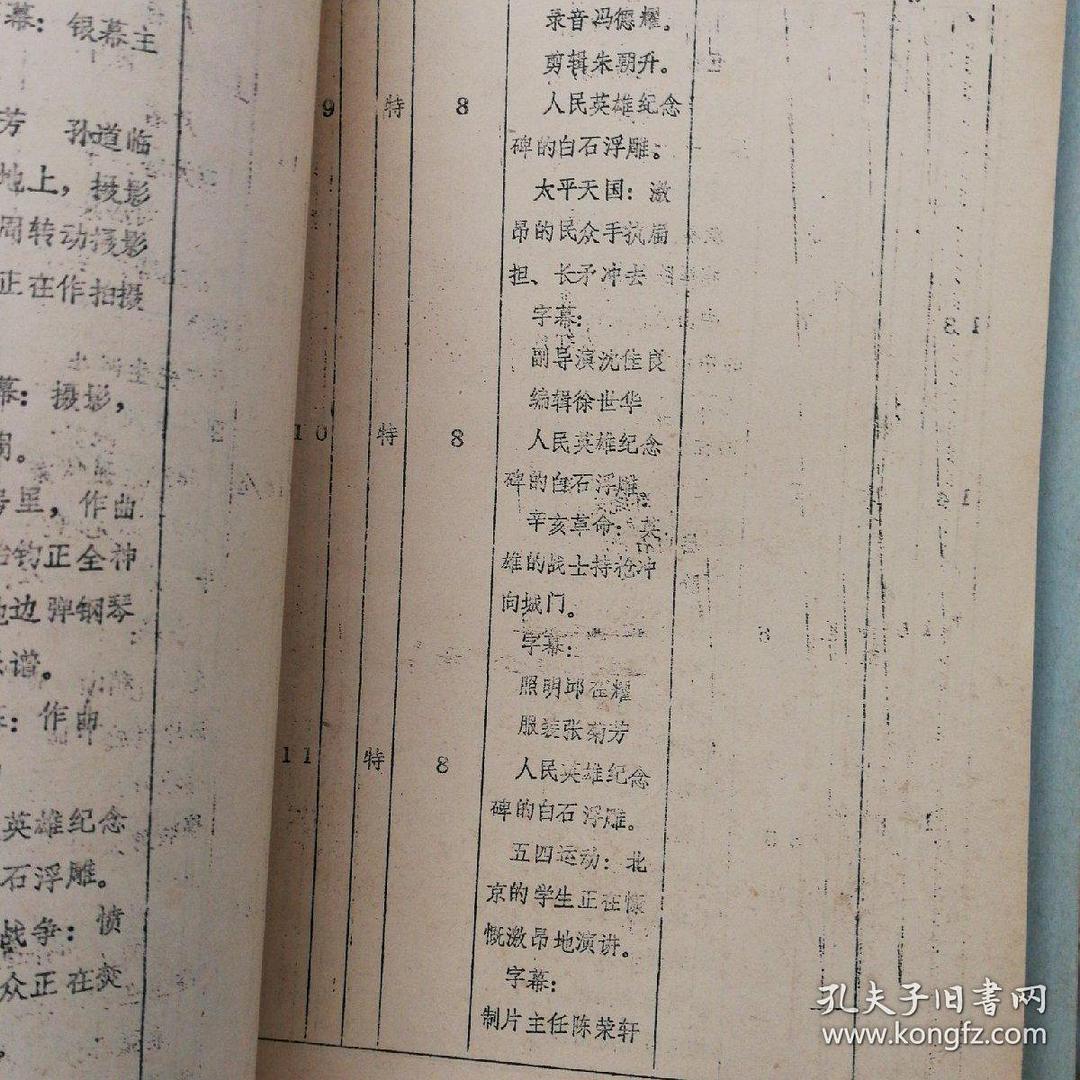 幕：银幕主
芳 孙道临
地上，摄影
周转动摄影
正在作拍摄
幕：摄影，
号里，作曲
钧正全神
边弹钢琴
谱。
：作曲
英雄纪念
石浮雕。
战争：愤
众正在焚
录音冯德耀。
剪辑朱朝升。
9 特 8 人民英雄纪念
碑的白石浮雕。
太平天国：激
昂的民众手执扁
担、长矛冲去
字幕：
副导演沈佳良
编辑徐世华
10 特 8 人民英雄纪念
碑的白石浮雕。
辛亥革命：英
雄的战士持枪冲
向城门。
字幕：
照明邱在耀
服装张菊芳
11 特 8 人民英雄纪念
碑的白石浮雕。
五四运动：北
京的学生正在慷
慨激昂地演讲。
字幕：
制片主任陈荣轩
孔夫子旧书网
www.kongfz.com